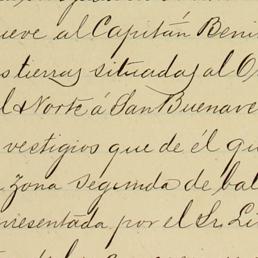 ueve al Capitán Beni
s tierras situadas al O
l Norte á San Buenave
vestigios que de él qu
zona segunda de bal
resentada por el Sr. Li